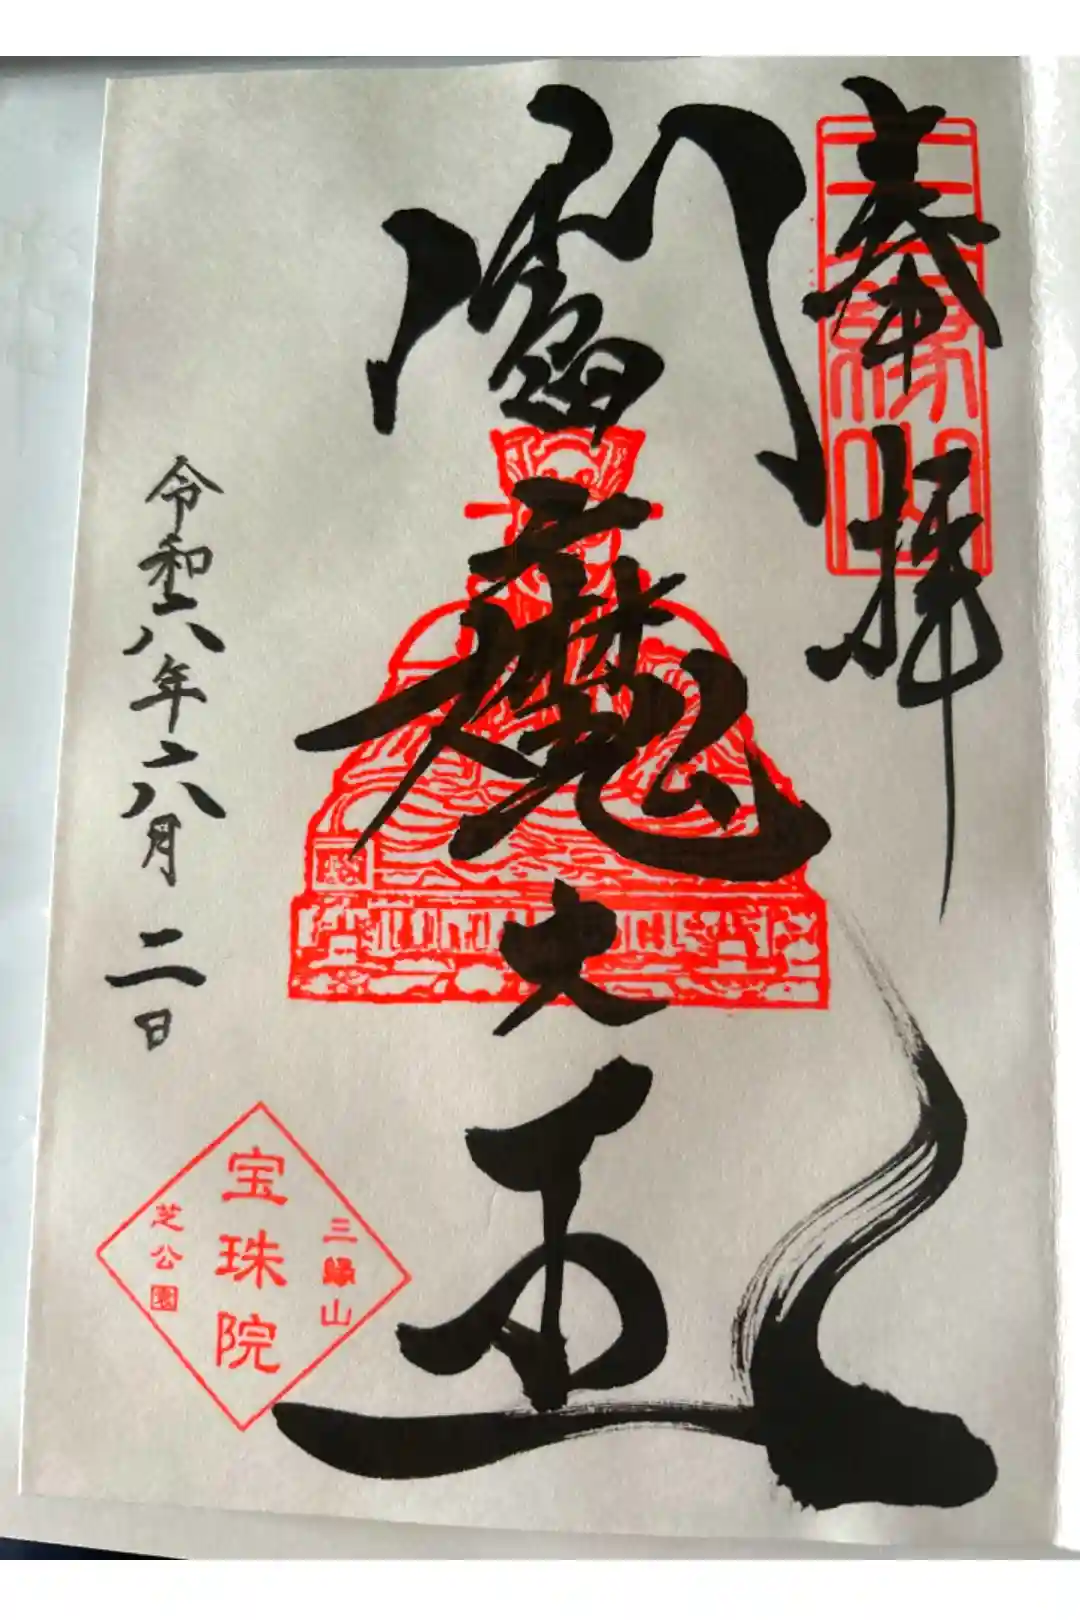 奉拝
三縁山
閻魔大王
令和六年六月二日
三縁山
宝珠院
芝公園